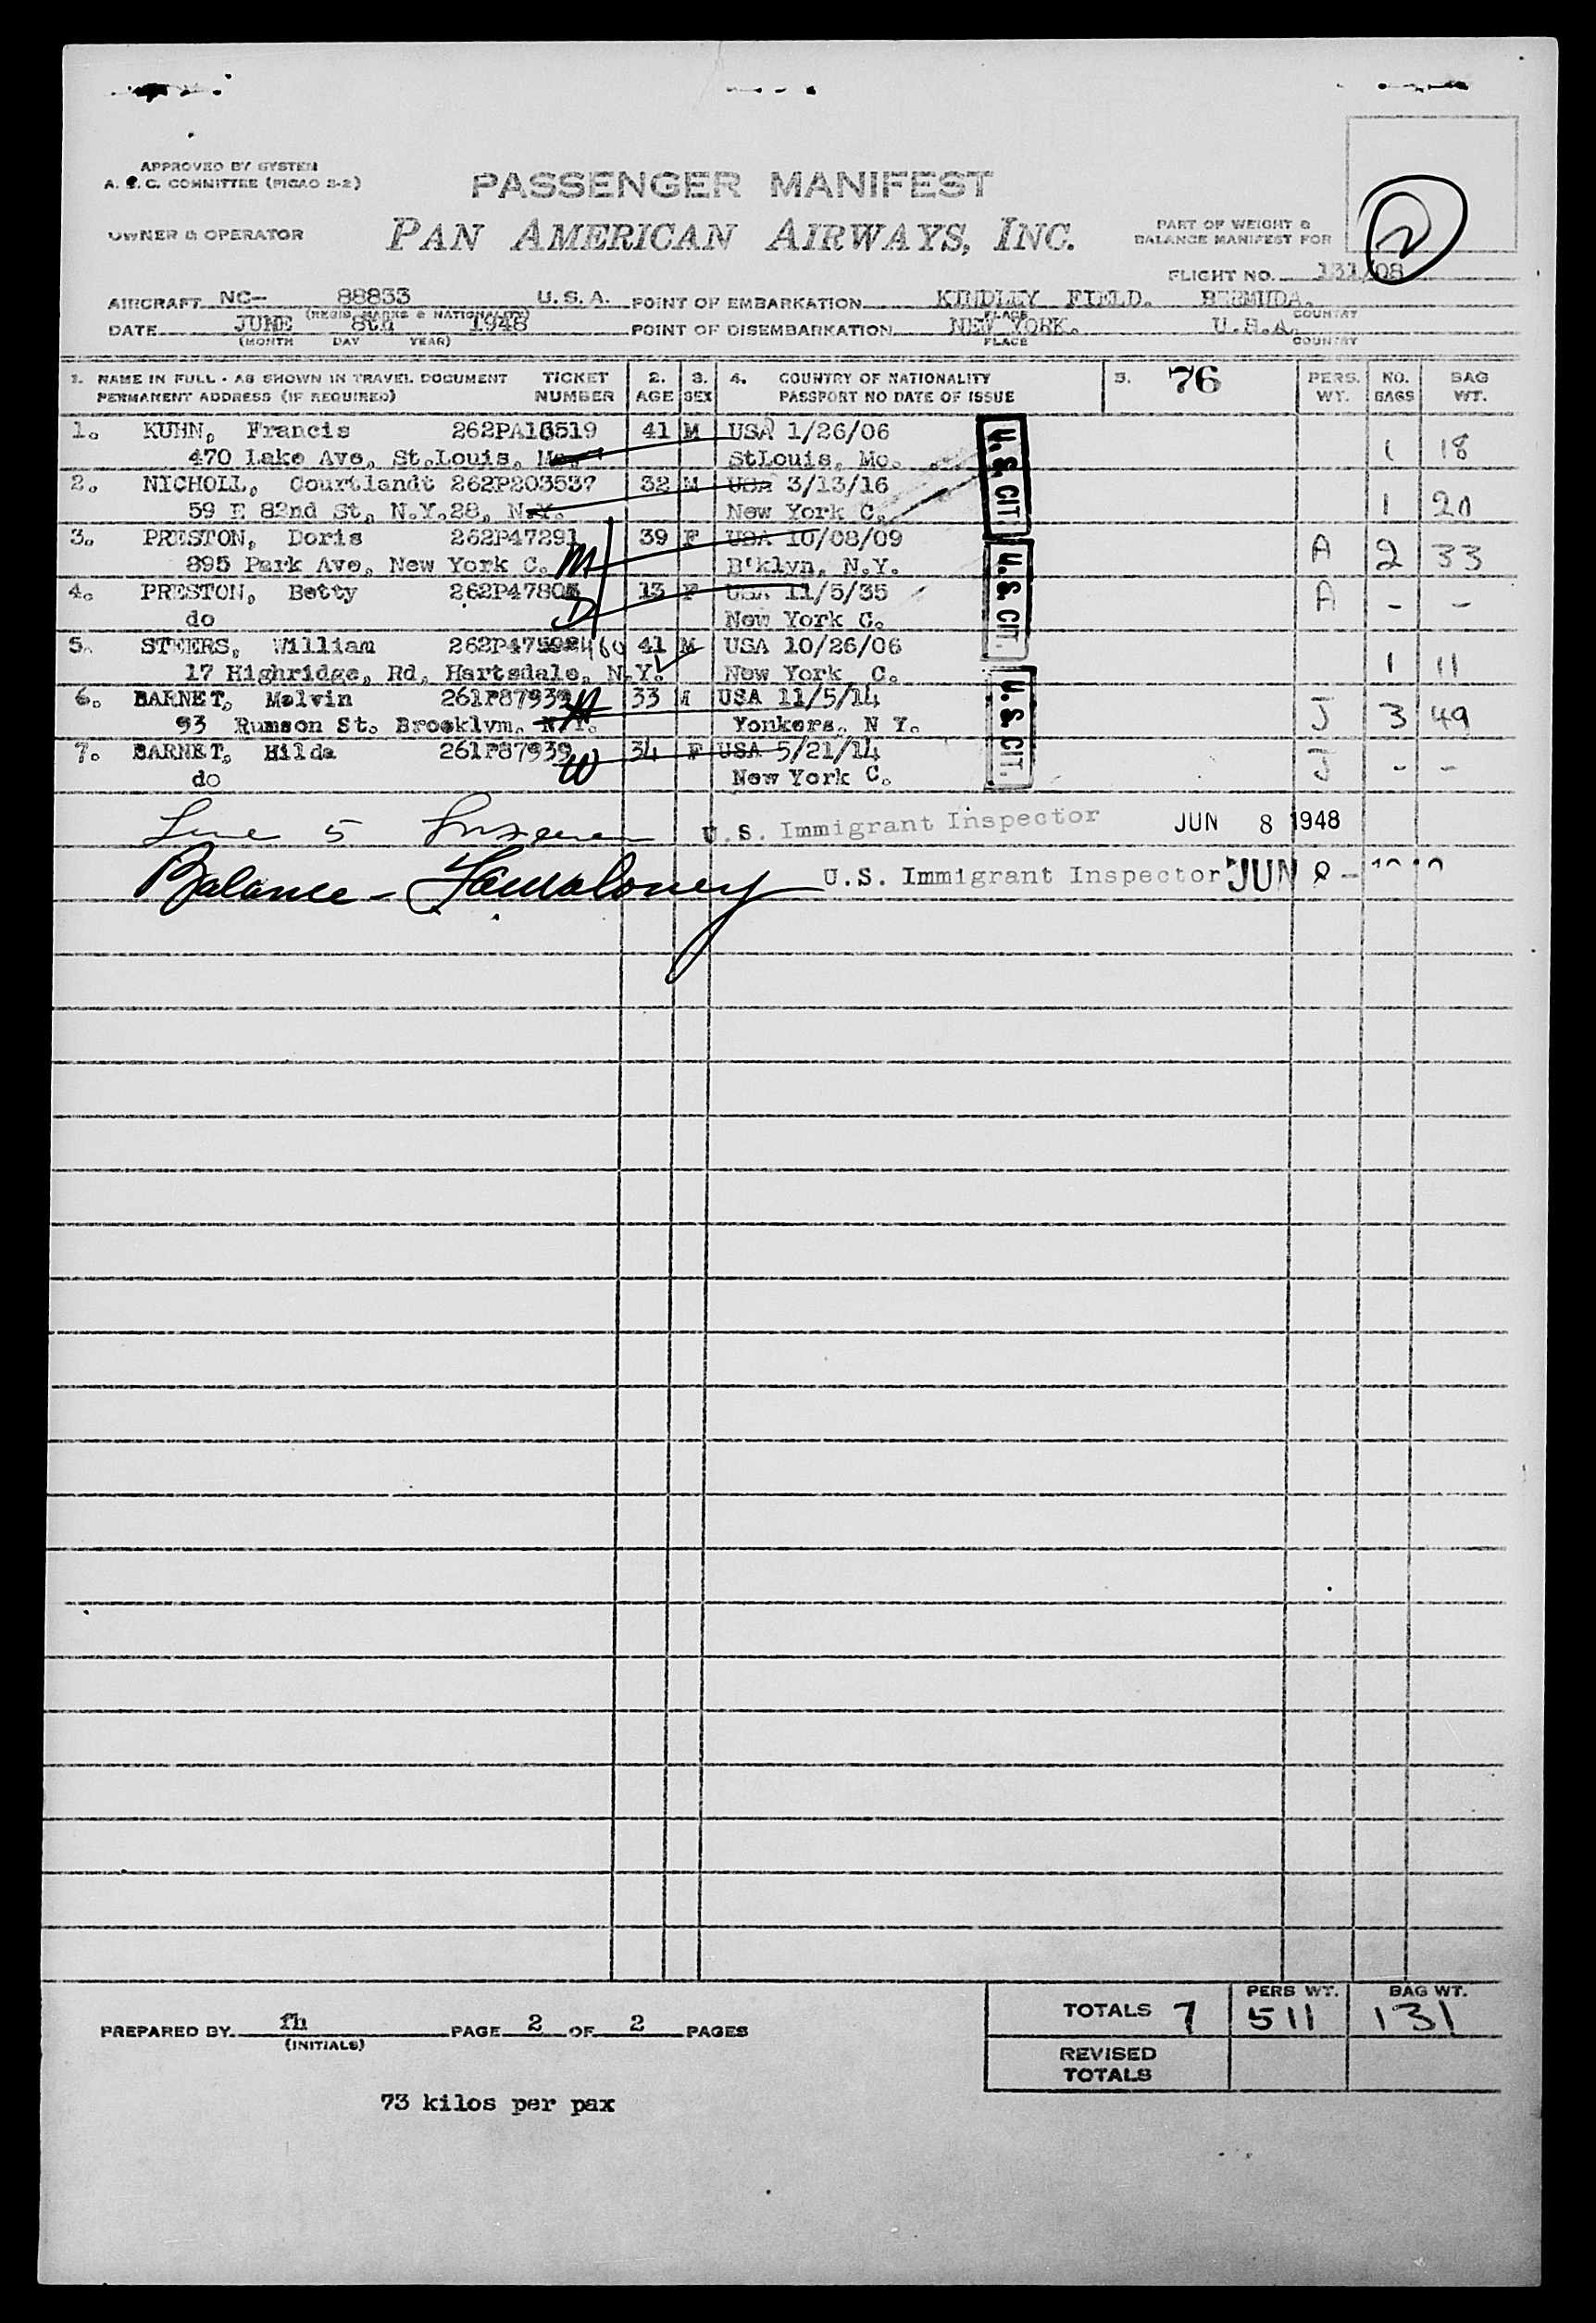 APPROVED BY SYSTEM
A. T. C. COMMITTEE (PICAO S-2)
PASSENGER MANIFEST
OWNER & OPERATOR
PAN AMERICAN AIRWAYS, INC.
PART OF WEIGHT &
BALANCE MANIFEST FOR
2
FLIGHT NO. 131/08
AIRCRAFT NC- 88833 U.S.A. POINT OF EMBARKATION KINDLEY FIELD. BERMUDA.
(REGIS. MARKS & NATIONALITY) PLACE COUNTRY
DATE JUNE 8th 1948 POINT OF DISEMBARKATION NEW YORK. U.S.A.
(MONTH DAY YEAR) PLACE COUNTRY
1. NAME IN FULL - AS SHOWN IN TRAVEL DOCUMENT TICKET 2. 3. 4. COUNTRY OF NATIONALITY 5. 76 PERS. NO. BAG
PERMANENT ADDRESS (IF REQUIRED) NUMBER AGE SEX PASSPORT NO DATE OF ISSUE WT. BAGS WT.
1. KUHN, Francis 41 M USA 1/26/06
470 Lake Ave, St.Louis, Mo. StLouis, Mo. 1 18
2. NICHOLL, Courtlandt 262P203537 32 M USA 3/13/16
59 E 82nd St, N.Y.28, N.Y. New York C. 1 20
3. PRESTON, Doris 262P47291 39 F USA 10/08/09
895 Park Ave, New York C. M B'klyn, N.Y. A 2 33
4. PRESTON, Betty 13 F USA 11/5/35
do New York C. A - -
5. STEERS, William 41 M USA 10/26/06
17 Highridge, Rd, Hartsdale, N.Y. New York C. 1 11
6. BARNET, Melvin 261P87939 33 M USA 11/5/14
93 Rumson St. Brooklym. N.Y. Yonkers, N Y. J 3 49
7. BARNET, Hilda 261P87939 34 F USA 5/21/14
do W New York C. J - -
U.S. CIT.
U.S. CIT.
U.S. CIT.
Line 5 U.S. Immigrant Inspector JUN 8 1948
Balance - U.S. Immigrant Inspector JUN 8 -
PREPARED BY fh PAGE 2 OF 2 PAGES
(INITIALS)
PERS WT. BAG WT.
TOTALS 7 511 131
REVISED
TOTALS
73 kilos per pax